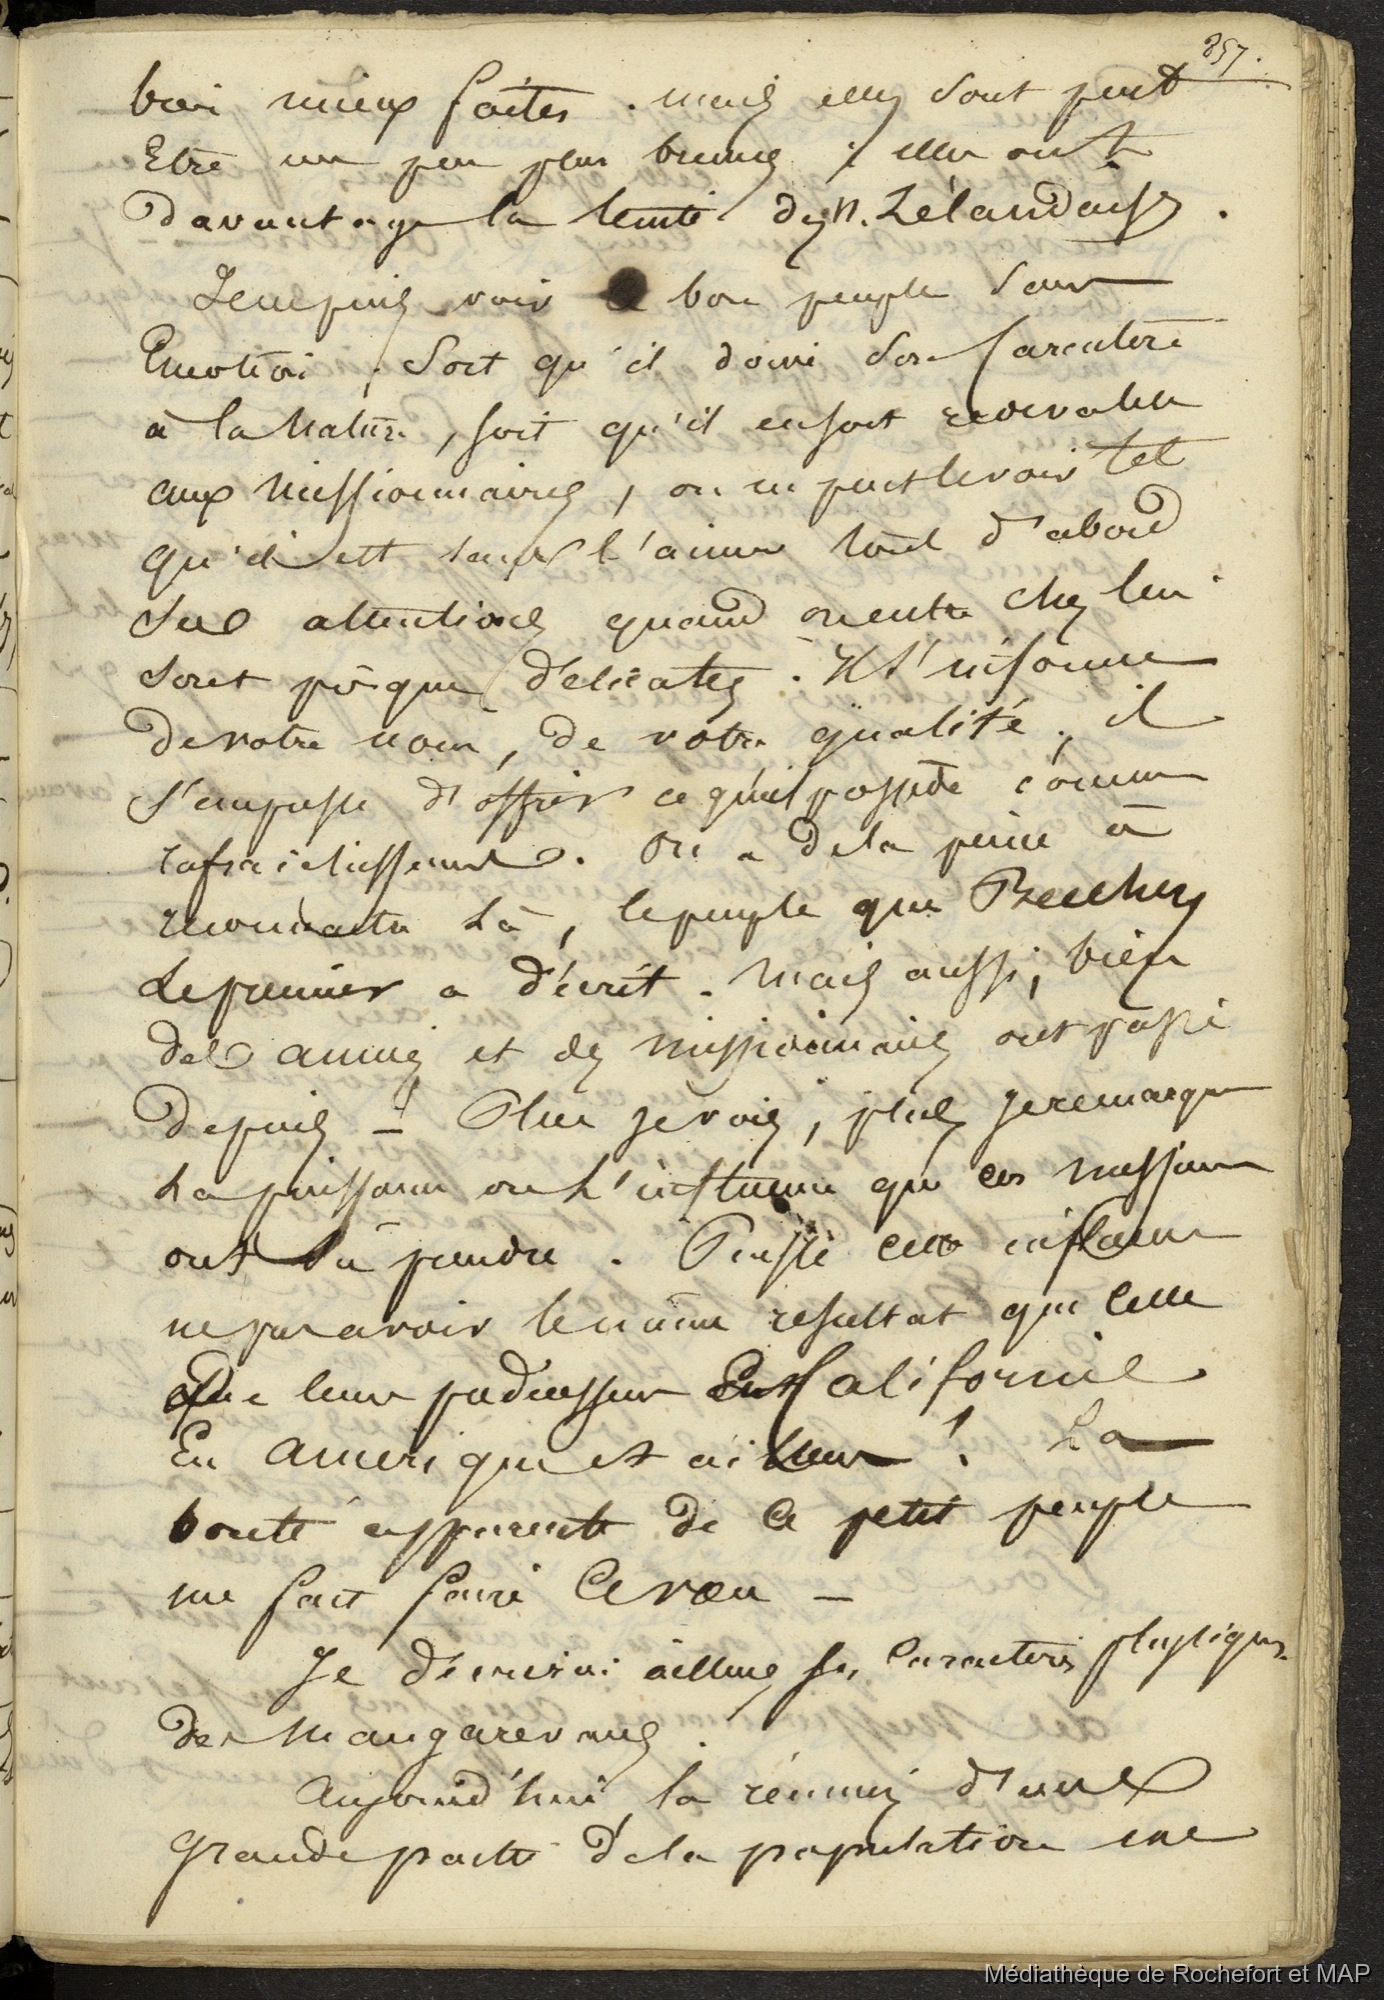 857.
bien mieux faites. mais elles sont peut
Etre un peu plus brunes; elles ont
davantage la teinte des N. Zélandais.
Je ne puis voir ce bon peuple sans
Emotion. Soit qu'il doive son Caractère
à la Nature, soit qu'il en soit redevable
aux Missionnaires, on ne peut le voir tel
qu'il est sans l'aimer tout d'abord
Ses attentions quand on entre chez lui
sont presque délicates. Il s'informe
de votre nom, de votre qualité, il
s'empresse d'offrir ce qu'il possède comme
rafraichissement. On a de la peine à
reconnaitre là, le peuple que Beechey
le premier a décrit. Mais aussi, bien
des années et des missionnaires ont passé
depuis – Plus je vois, plus je remarque
la puissance ou l'influence que ces messieurs
ont su prendre. Puisse cette influence
ne pas avoir le même resultat que celle
que leurs prédécesseurs En Californie
En Amerique et ailleurs! La
bonté apparente de ce petit peuple
me fait faire ce vœu –
Je décrirai ailleurs les Caractères physiques
des Mangareviens.
Aujourd'hui la réunion d'une
grande partie de la population me
Médiathèque de Rochefort et MAP